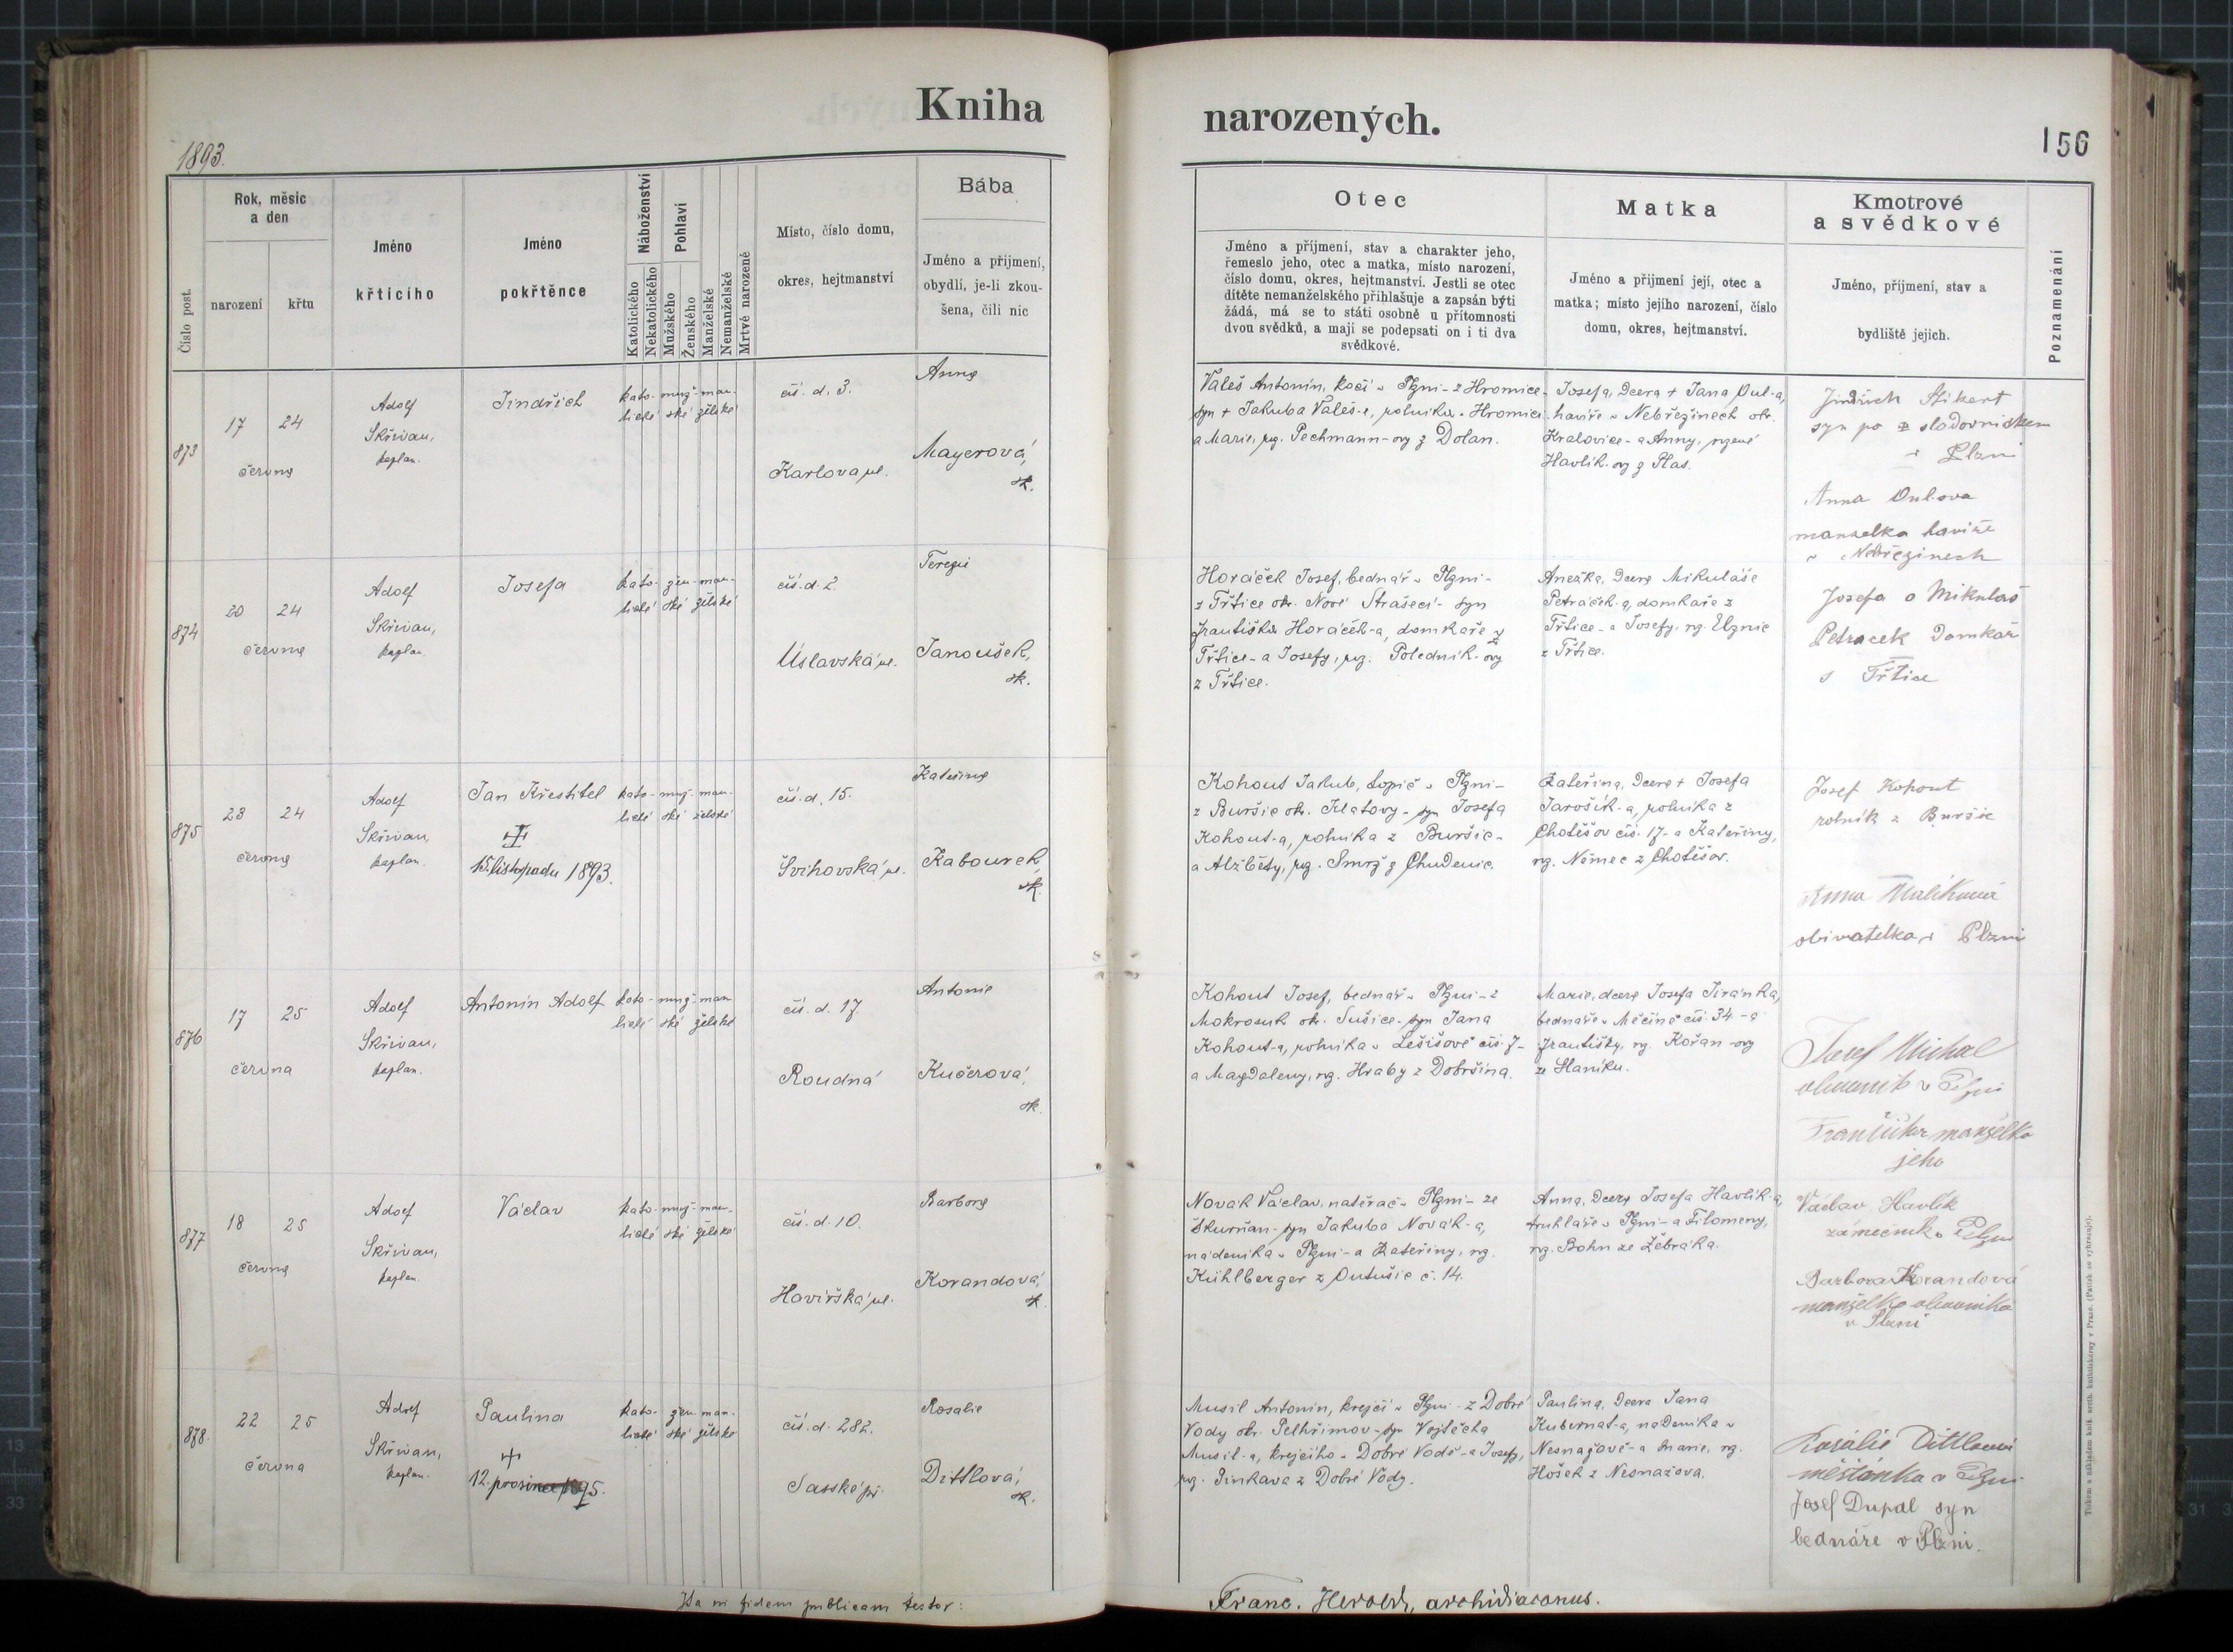 Kniha narozených.
1893.
156
Číslo post.
Rok, měsíc
a den
narození
křtu
Jméno
křtícího
Jméno
pokřtěnce
Náboženství
Katolického
Nekatolického
Pohlaví
Mužského
Ženského
Manželské
Nemanželské
Mrtvě narozené
Místo, číslo domu,
okres, hejtmanství
Bába
Jméno a přijmení,
obydlí, je-li zkou-
šena, čili nic
Otec
Jméno a příjmení, stav a charakter jeho,
řemeslo jeho, otec a matka, místo narození,
číslo domu, okres, hejtmanství. Jestli se otec
dítěte nemanželského přihlašuje a zapsán býti
žádá, má se to státi osobně u přítomnosti
dvou svědků, a mají se podepsati on i ti dva
svědkové.
Matka
Jméno a přijmení její, otec a
matka; místo jejího narození, číslo
domu, okres, hejtmanství.
Kmotrové
a svědkové
Jméno, příjmení, stav a
bydliště jejich.
Poznamenání
873
17 24
června
Adolf
Skřivan,
kaplan.
Jindřich
kato- muž- man-
lické ské želské
čís. d. 3.
Karlova ul.
Anna
Mayerová,
zk.
Valeš Antonín, kočí v Plzni - z Hromice -
syn + Jakuba Valeš-e, rolníka v Hromici
a Marie, roz. Pechmann-ovy z Dolan.
Josefa, dcera + Jana Oul-a,
havíře v Nebřezinech okr.
Kralovice - a Anny, rozené
Havlík-ovy z Plas.
Jindřich
syn po sladovnickem
v Plzni
Anna Oulova
manzelka havíře
v Nebřezinech
874
20 24
června
Adolf
Skřivan,
kaplan.
Josefa
kato- žen- man-
lické ské želské
čís. d. 2.
Úslavská ul.
Terezie
Janoušek,
zk.
Horáček Josef, bednář v Plzni -
z Třtice okr. Nové Strašecí - syn
Františka Horáček-a, domkaře z
Třtice - a Josefy, roz. Poledník-ovy
z Třtice.
Anežka, dcera Mikuláše
Petráček-a, domkaře z
Třtice - a Josefy, roz. Elznic
z Třtice.
Josefa a Mikulaš
Petracek Domkař
s Třtice
875
23 24
června
Adolf
Skřivan,
kaplan.
Jan Křestitel
15. listopadu 1893.
kato- muž- man-
lické ské želské
čís. d. 15.
Švihovská ul.
Kateřina
Kabourek,
zk.
Kohout Jakub, topič v Plzni -
z Buršic okr. Klatovy - syn Josefa
Kohout-a, rolníka z Buršic -
a Alžběty, roz. Smrž z Chudenic.
Kateřina, dcera + Josefa
Jarošík-a, rolníka z
Chotěšov čís. 17 - a Kateřiny,
roz. Němec z Chotěšov.
Josef Kohout
rolník z Buršic
Anna Malíková
obivatelka v Plzni
876
17 25
června
Adolf
Skřivan,
kaplan.
Antonín Adolf
kato- muž- man-
lické ské želské
čís. d. 17.
Roudná
Antonie
Kučerová,
zk.
Kohout Josef, bednář v Plzni - z
Mokrosuk okr. Sušice - syn Jana
Kohout-a, rolníka v Lešišově čís. 7 -
a Magdaleny, roz. Hraby z Dobršína.
Marie, dcera Josefa Jiránka,
bednáře v Měčíně čís. 34 - a
Františky, roz. Kořan-ovy
ze Slaníku.
Josef Michal
obuvník v Plzni
Františka manželka
jeho
877
18 25
června
Adolf
Skřivan,
kaplan.
Václav
kato- muž- man-
lické ské želské
čís. d. 10.
Havířská ul.
Barbora
Korandová,
zk.
Novák Václav, natěrač v Plzni - ze
Skurňan - syn Jakuba Novák-a,
nádeníka v Plzni - a Kateřiny, roz.
Kühlberger z Outušic č. 14.
Anna, dcera Josefa Havlík-a,
truhláře v Plzni - a Filomeny,
roz. Bohn ze Žebráka.
Václav Havlík
zámečník v Plzni
Barbora Korandová
manželka obuvníka
v Plzni
878.
22 25
června
Adolf
Skřivan,
kaplan.
Paulina
12. prosince 1895.
kato- žen- man-
lické ské želské
čís. d. 282.
Saské př.
Rosalie
Dittlová,
zk.
Musil Antonín, krejčí v Plzni - z Dobré
Vody okr. Pelhřimov - syn Vojtěcha
Musil-a, krejčího v Dobré Vodě - a Josefy,
roz. Pinkava z Dobré Vody.
Paulina, dcera Jana
Kubernat-a, nadeníka v
Nesnažově - a Marie, roz.
Hošek z Nesnažova.
Rosalie Dittlová
měšťanka v Plzni
Josef Dupal syn
bednáře v Plzni.
Ita in fidem publicam testor:
Franc. Herold, archidiaconus.